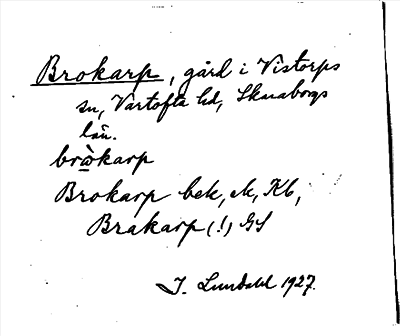 Brokarp, gård i Vistorps
sn, Vartofta hd, Skaraborgs
län.
bròkarp
Brokarp bek, ek, Kb,
Brakarp (!) GS
I. Lundahl 1927.